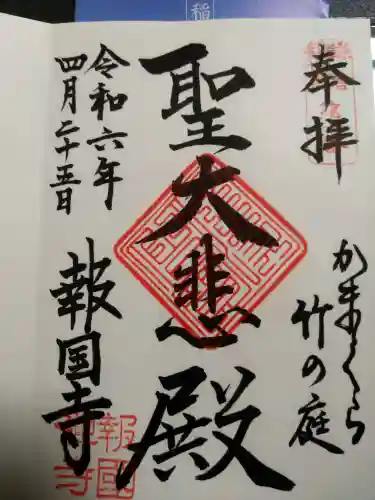 奉拝
かまくら
竹の庭
聖大悲殿
令和六年
四月二十五日
報国寺
稲